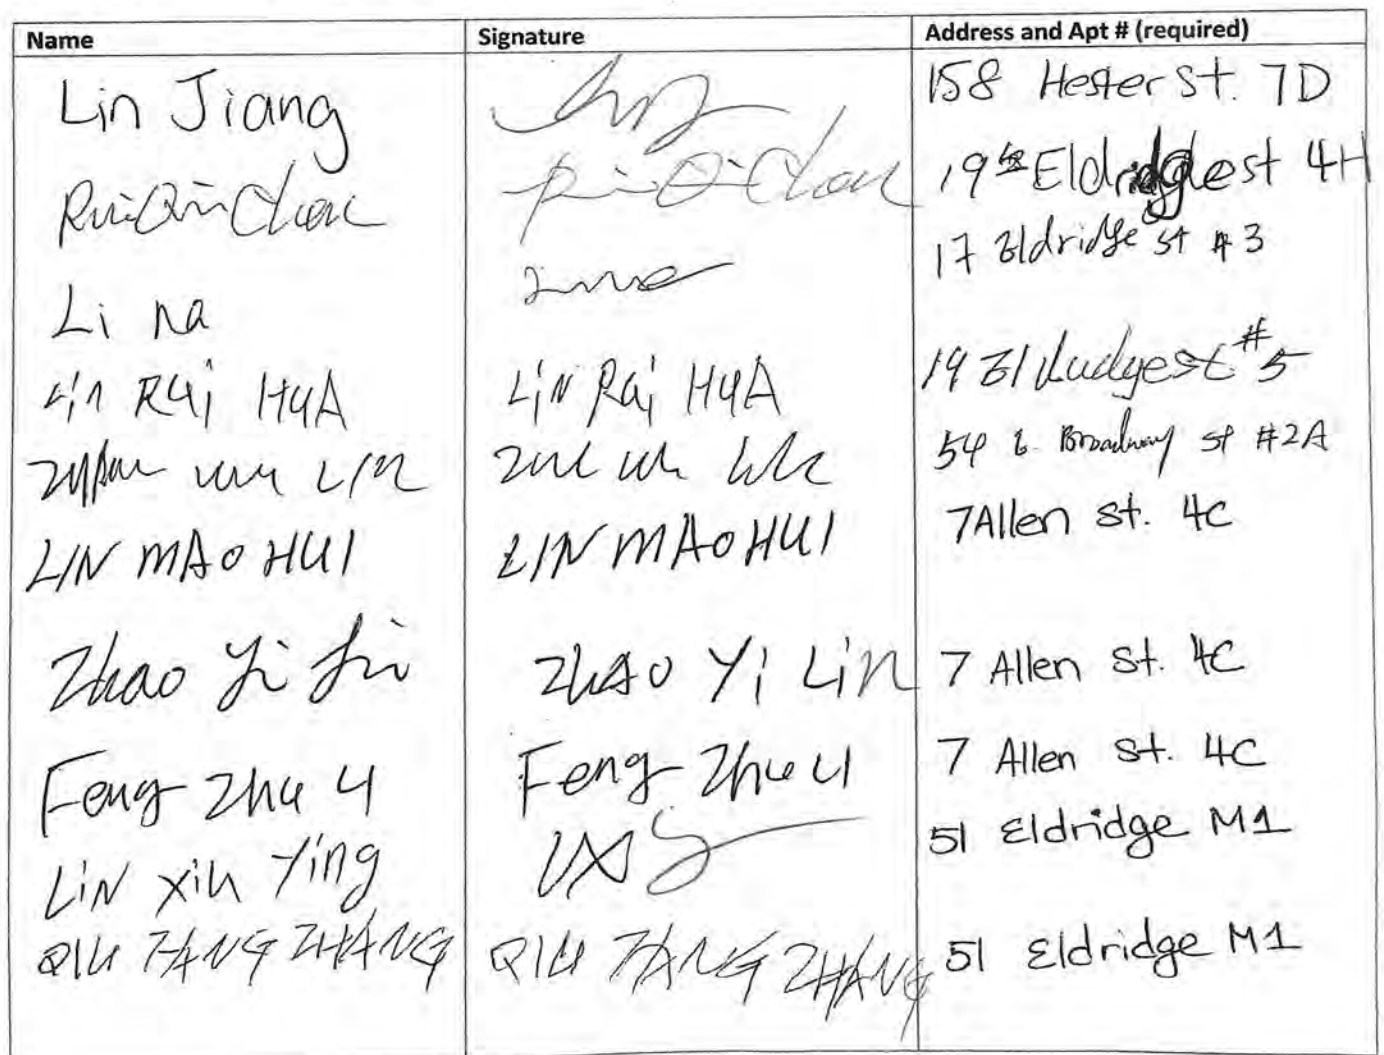 Name Signature Address and Apt # (required)
Lin Jiang 158 Hester St. 7D
RuiQin Chen RuiQin Chen 19 Eldridge st 4H
Li na 17 Eldridge st # 3
Lin Rui HuA LiN Rui HuA 19 Eldridge st # 5
Lin 54 E. Broadway st #2A
LIN MAO HUI LIN MAO HUI 7 Allen St. 4C
Zhao Yi Lin Zhao Yi Lin 7 Allen St. 4C
Feng Zhu Li Feng Zhu Li 7 Allen St. 4C
LiN Xiu Ying 51 Eldridge M1
QIU ZHANG QIU ZHANG 51 Eldridge M1